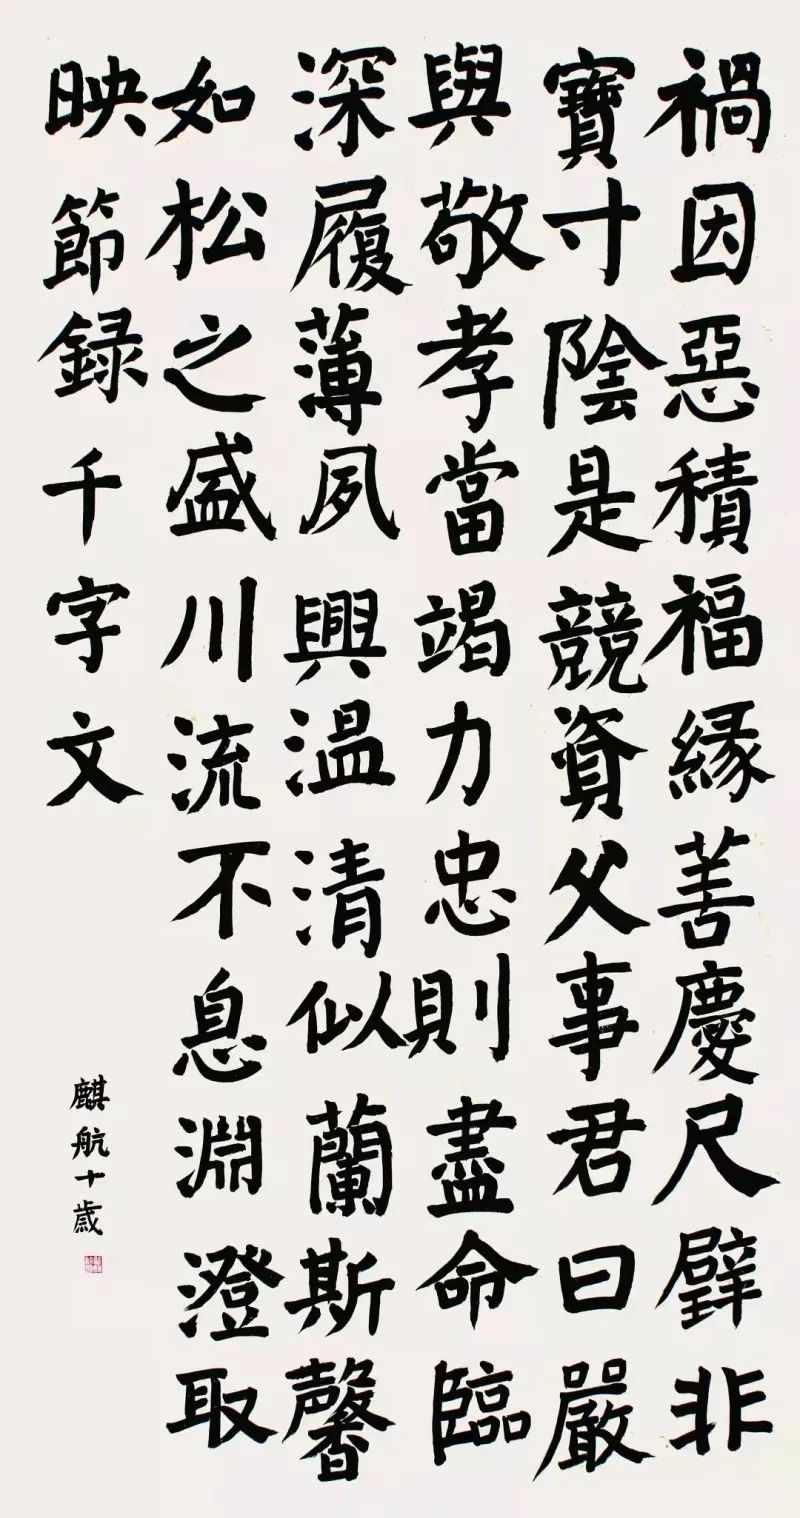 禍因惡積福緣善慶尺璧非
寶寸陰是競資父事君曰嚴
與敬孝當竭力忠則盡命臨
深履薄夙興溫清似蘭斯馨
如松之盛川流不息淵澄取
映節録千字文
麒航十歲